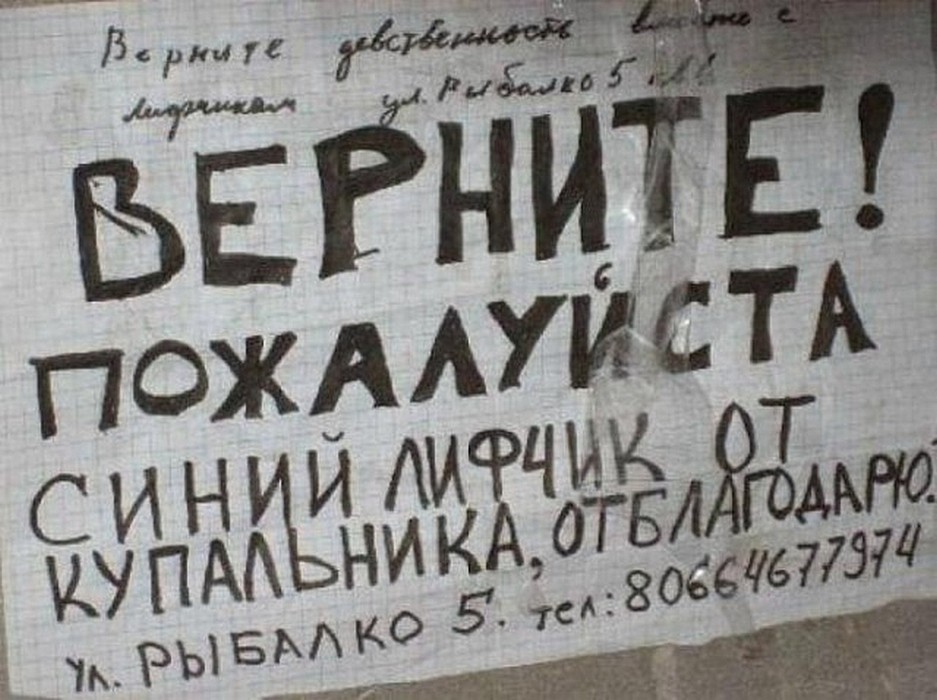 Верните девственность вместе с
лифчиком ул. Рыбалко 5
ВЕРНИТЕ!
ПОЖАЛУЙСТА
СИНИЙ ЛИФЧИК ОТ
КУПАЛЬНИКА, ОТБЛАГОДАРЮ.
ул. РЫБАЛКО 5. тел: 80664677974